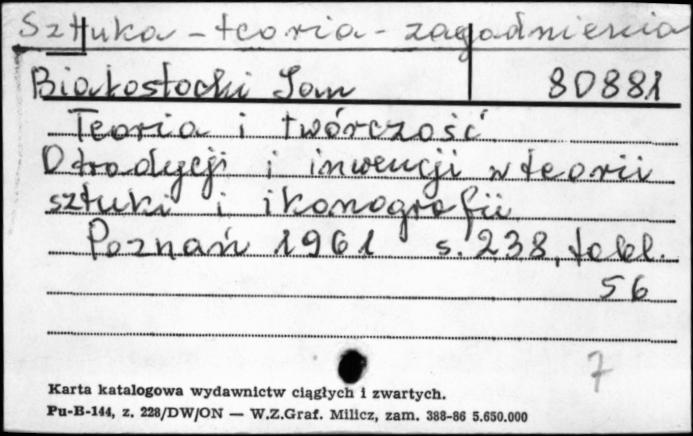 Sztuka - teoria - zagadnienia
Białostocki Jan 80881
Teoria i twórczość
O tradycji i inwencji w teorii
sztuki i ikonografii
Poznań 1961 s. 238, tabl.
56
7
Karta katalogowa wydawnictw ciągłych i zwartych.
Pu-B-144, z. 228/DW/ON — W.Z.Graf. Milicz, zam. 388-86 5.650.000